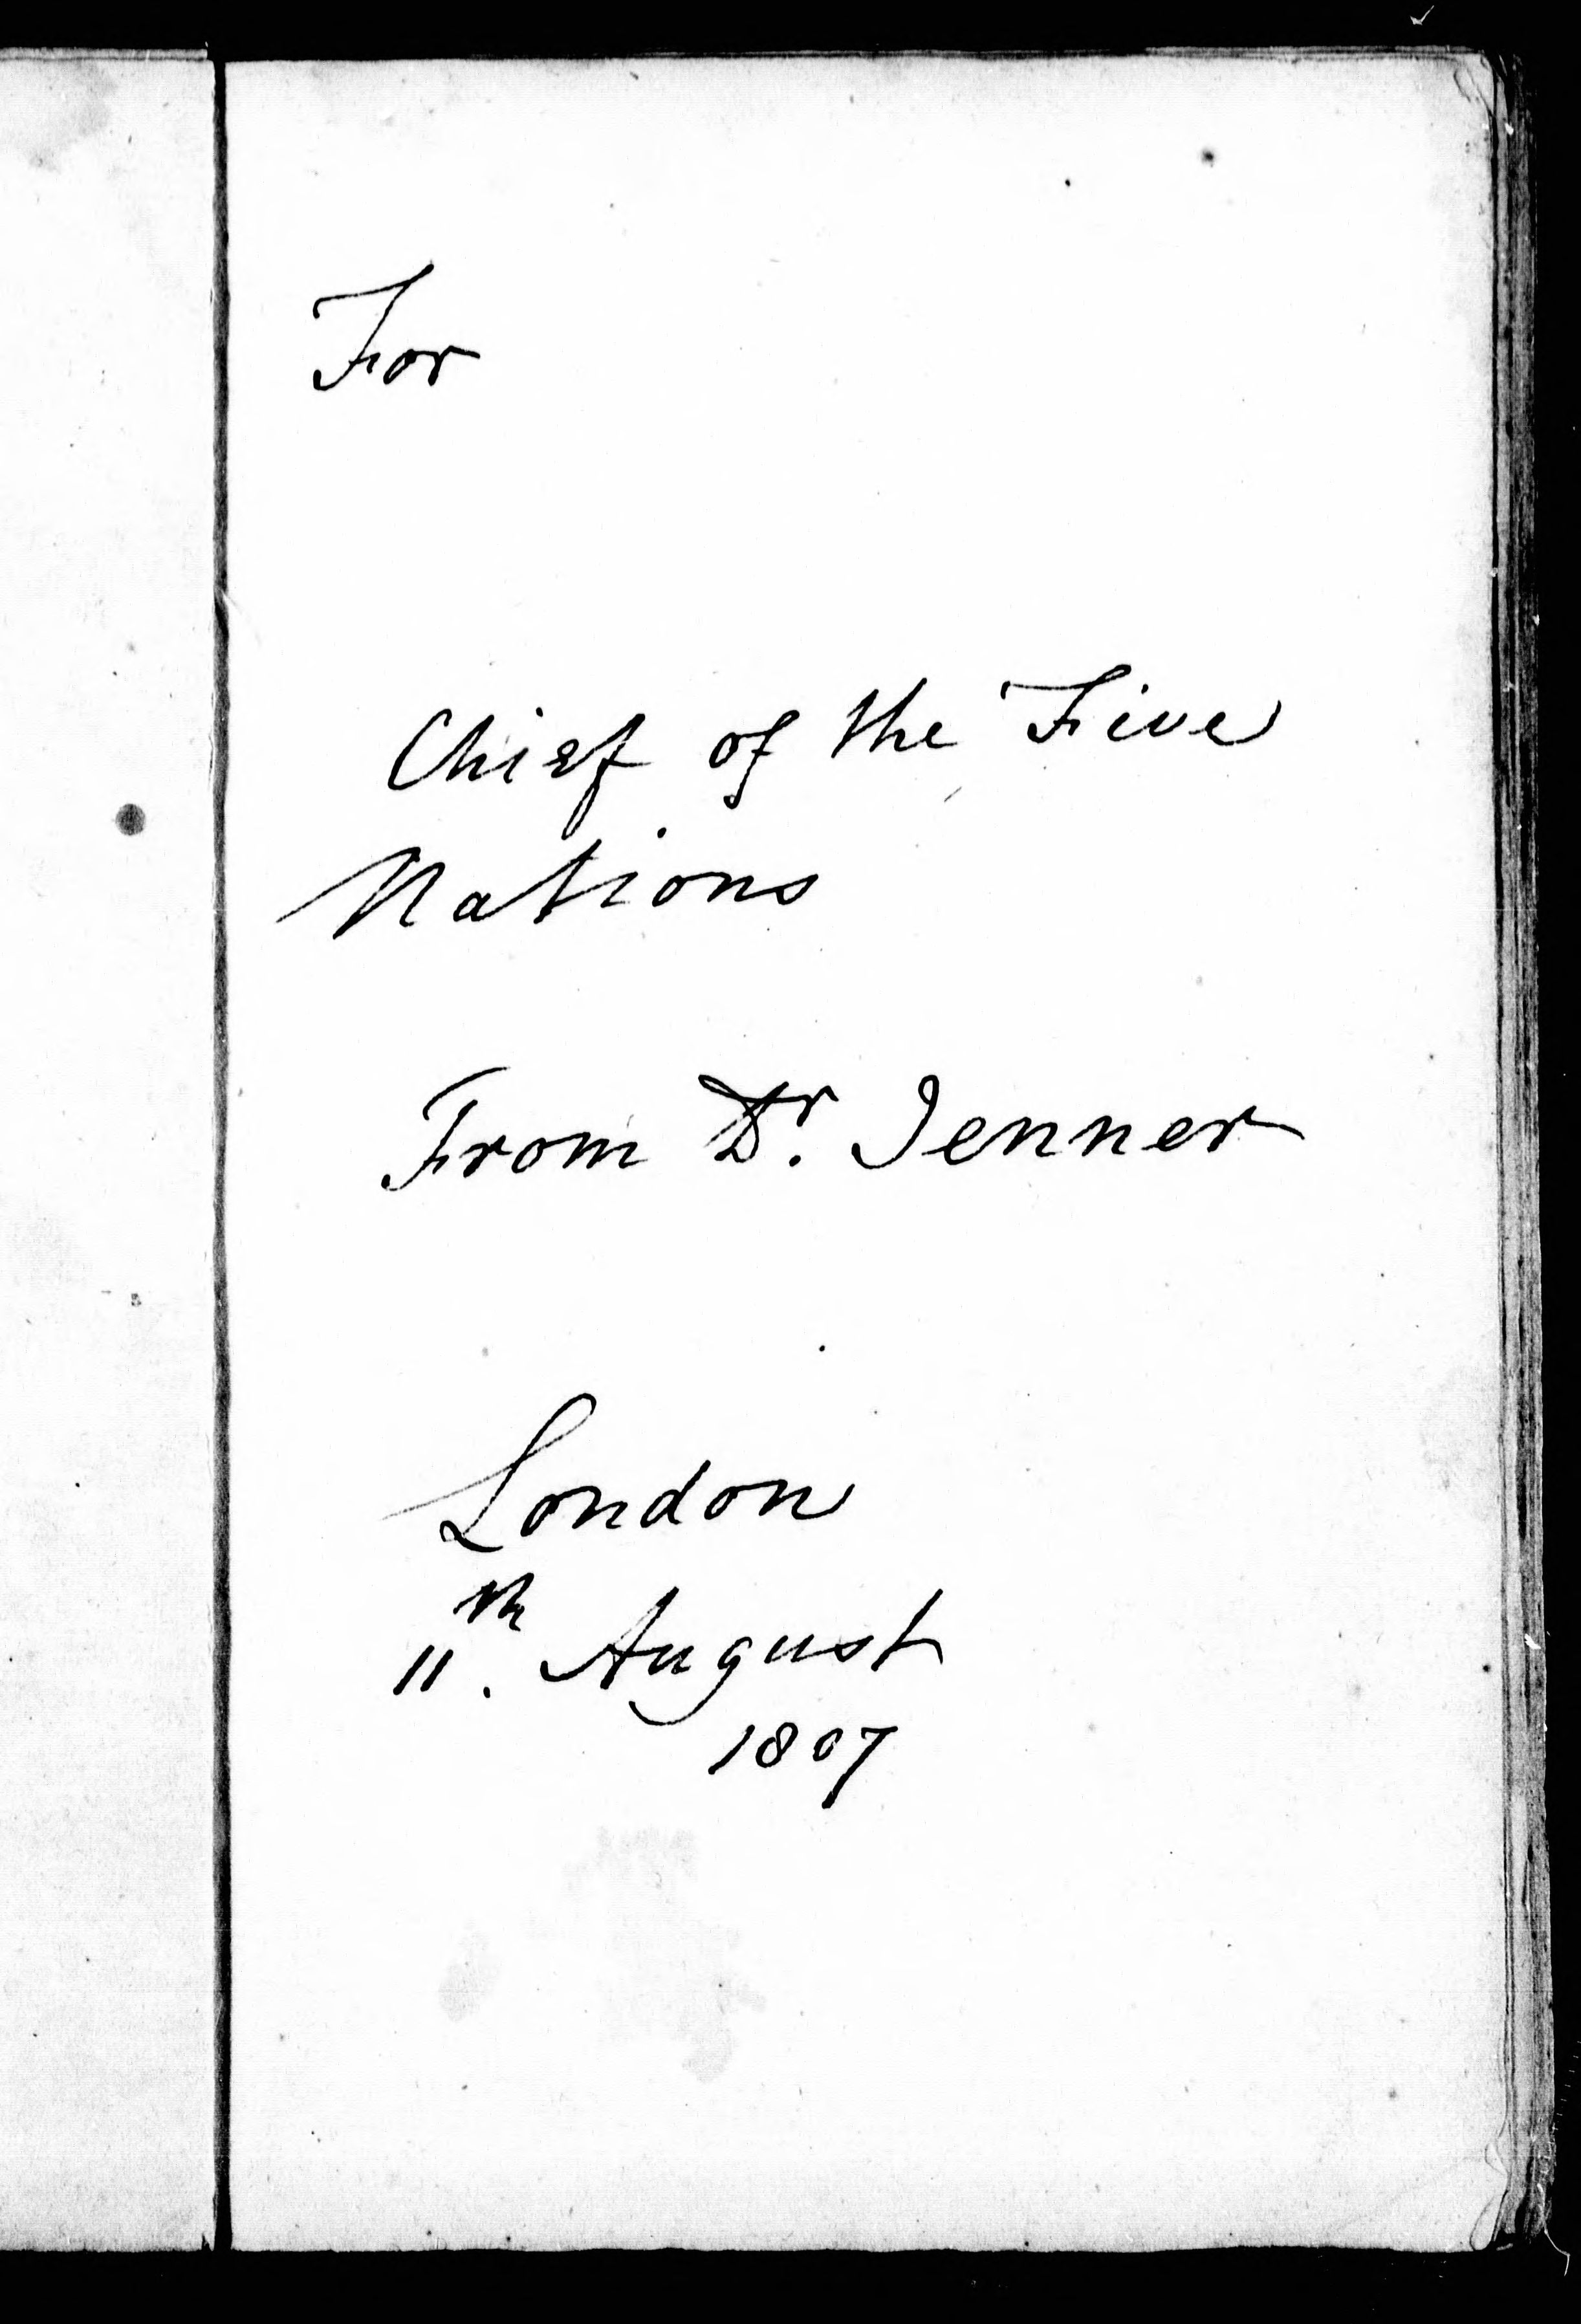 For
Chief of the Five
Nations
From Dr. Jenner
London
11th. August
1807